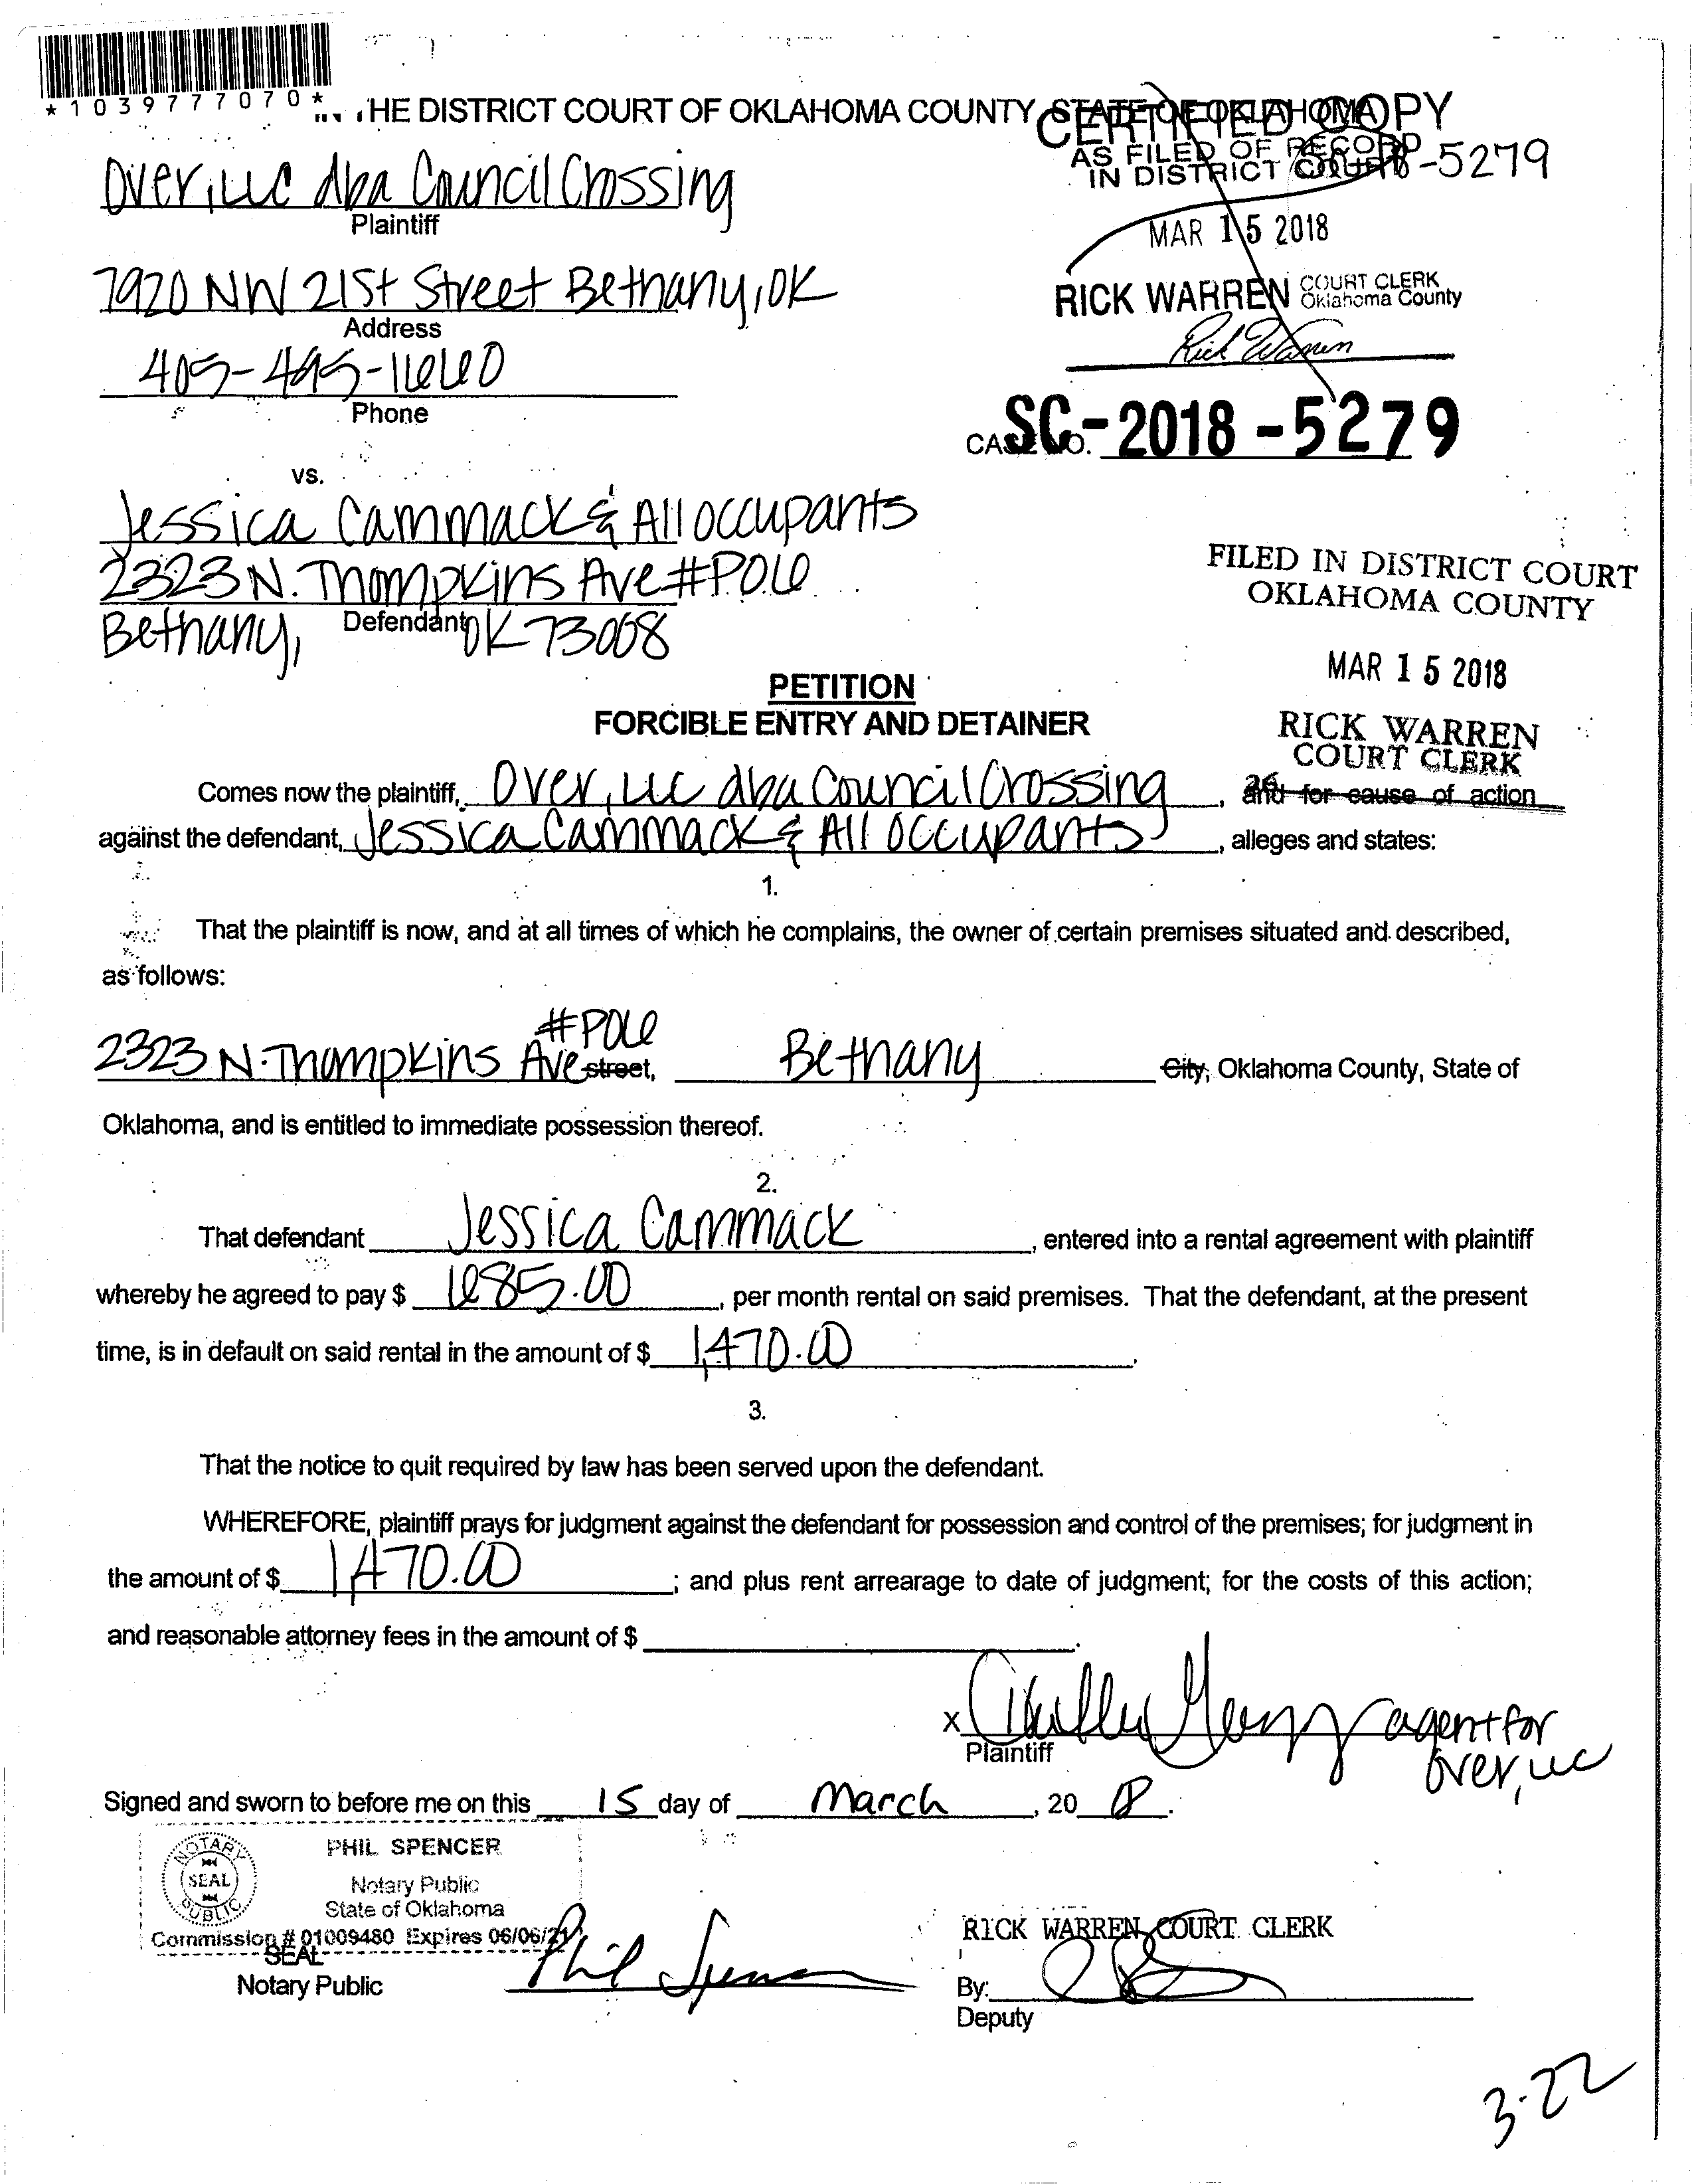 *1039777070*
THE DISTRICT COURT OF OKLAHOMA COUNTY, STATE OF OKLAHOMA
CERTIFIED COPY
AS FILED OF RECORD
IN DISTRICT COURT
-5279
Over, LLC dba Council Crossing
Plaintiff
MAR 15 2018
7920 NW 21st Street Bethany, OK
Address
RICK WARREN COURT CLERK
Oklahoma County
Rick Warren
405-495-1660
Phone
CASE NO. SC-2018-5279
vs.
Jessica Cammack & All occupants
2323 N. Thompkins Ave #P06
Bethany, OK 73008
Defendant
FILED IN DISTRICT COURT
OKLAHOMA COUNTY
MAR 15 2018
RICK WARREN
COURT CLERK
PETITION
FORCIBLE ENTRY AND DETAINER
26
Comes now the plaintiff, Over, LLC dba Council Crossing, and for cause of action
against the defendant, Jessica Cammack & All occupants, alleges and states:
1.
That the plaintiff is now, and at all times of which he complains, the owner of certain premises situated and described,
as follows:
2323 N. Thompkins Ave #P06 street, Bethany City, Oklahoma County, State of
Oklahoma, and is entitled to immediate possession thereof.
2.
That defendant Jessica Cammack, entered into a rental agreement with plaintiff
whereby he agreed to pay $ 685.00, per month rental on said premises. That the defendant, at the present
time, is in default on said rental in the amount of $ 1,470.00.
3.
That the notice to quit required by law has been served upon the defendant.
WHEREFORE, plaintiff prays for judgment against the defendant for possession and control of the premises; for judgment in
the amount of $ 1,470.00; and plus rent arrearage to date of judgment; for the costs of this action;
and reasonable attorney fees in the amount of $ .
x agent for
Over, LLC
Plaintiff
Signed and sworn to before me on this 15 day of March, 20 18.
NOTARY
SEAL
PUBLIC
PHIL SPENCER
Notary Public
State of Oklahoma
Commission # 01009480 Expires 06/06/21
SEAL
Notary Public
Phil Spencer
RICK WARREN COURT CLERK
By:
Deputy
3-22